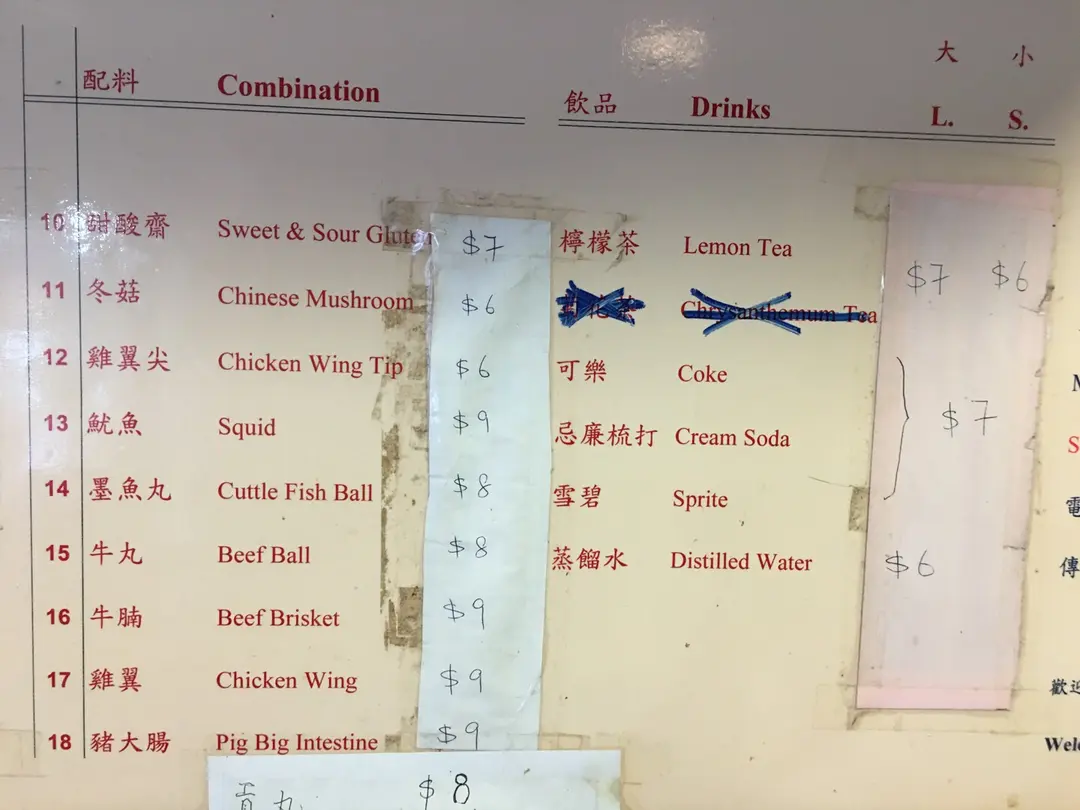 配料 Combination
10 甜酸齋 Sweet & Sour Gluten $7
11 冬菇 Chinese Mushroom $6
12 雞翼尖 Chicken Wing Tip $6
13 魷魚 Squid $9
14 墨魚丸 Cuttle Fish Ball $8
15 牛丸 Beef Ball $8
16 牛腩 Beef Brisket $9
17 雞翼 Chicken Wing $9
18 豬大腸 Pig Big Intestine $9
貢丸 $8
大 小
飲品 Drinks L. S.
檸檬茶 Lemon Tea $7 $6
Chrysanthemum Tea
可樂 Coke
忌廉梳打 Cream Soda $7
雪碧 Sprite
蒸餾水 Distilled Water $6
電
傳
歡迎